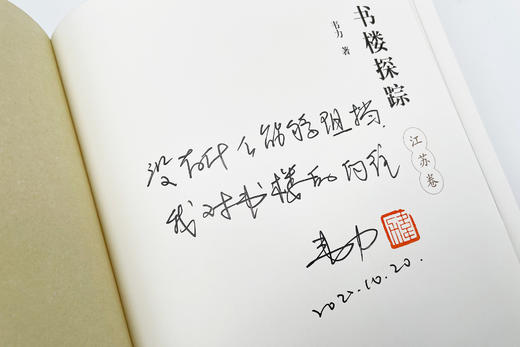 书楼探踪
韦力 著
江苏卷
没有什么能够阻挡
我对书楼的向往
韦力
2022.10.20.